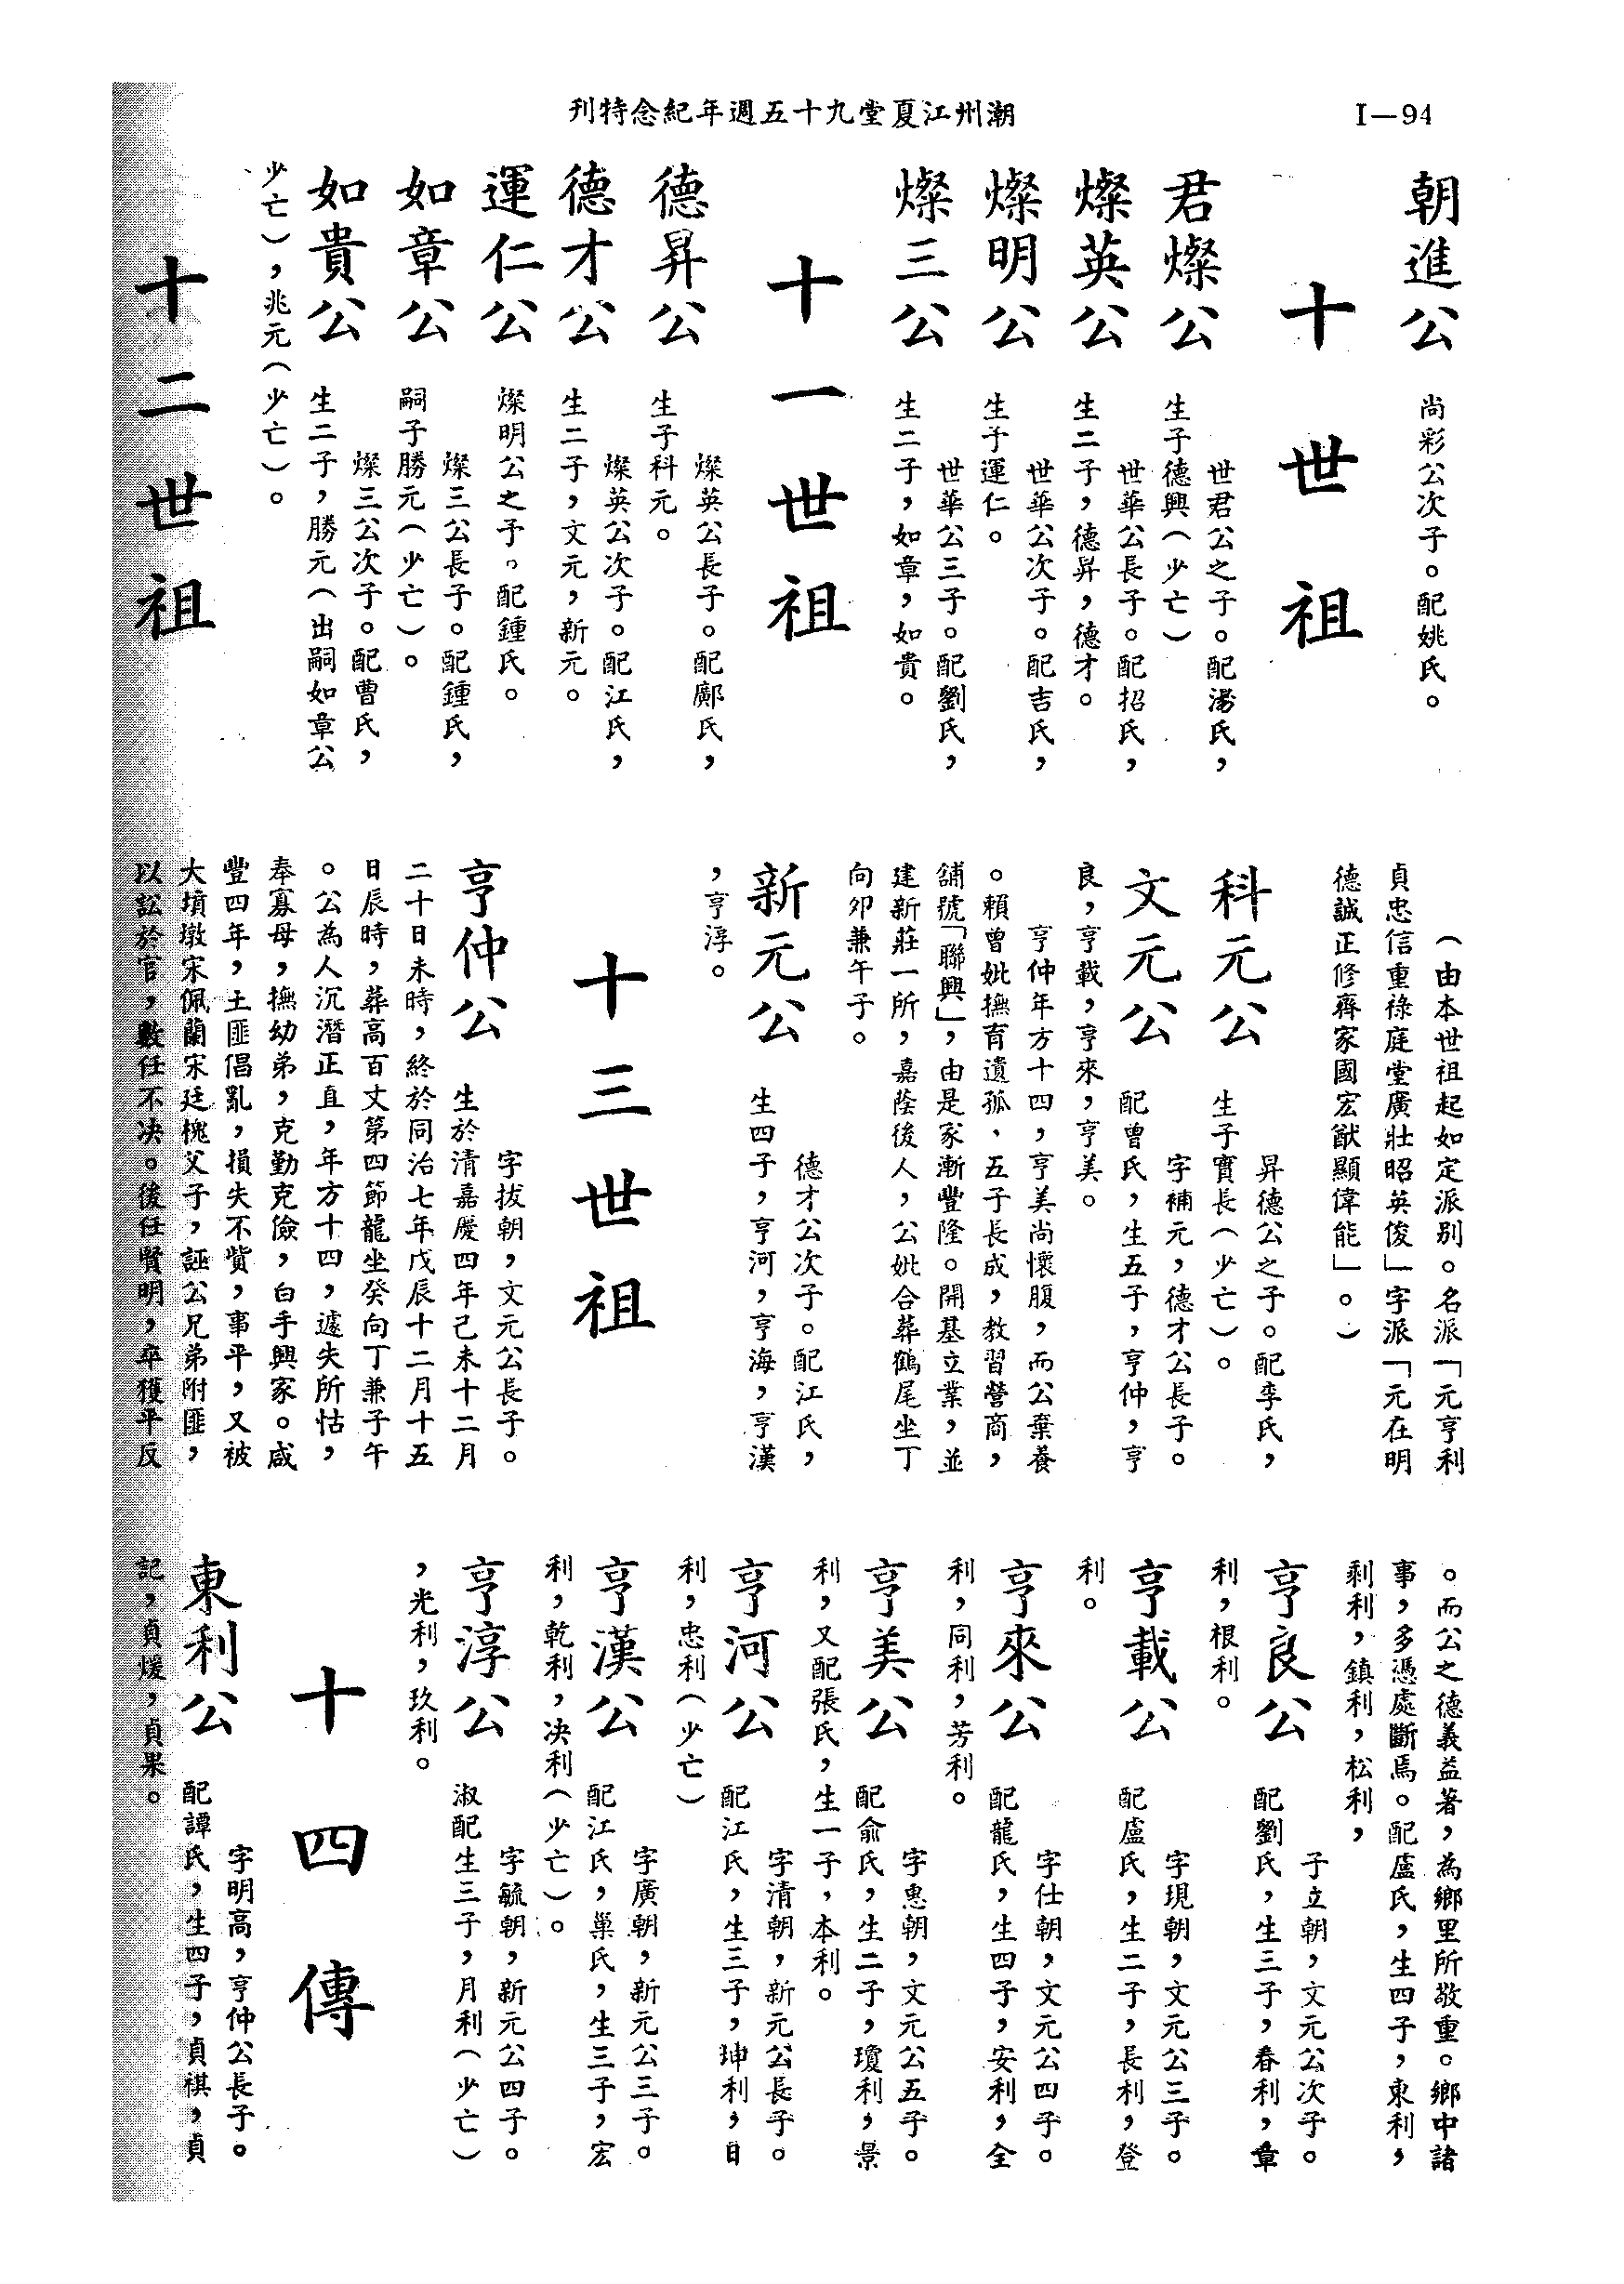 I—94
潮州江夏堂九十五週年紀念特刊
朝進公　尚彩公次子。配姚氏。
十世祖
君燦公　世君公之子。配湯氏，
生子德興（少亡）
燦英公　世華公長子。配招氏，
生二子，德昇，德才。
燦明公　世華公次子。配吉氏，
生子運仁。
燦三公　世華公三子。配劉氏，
生二子，如章，如貴。
十一世祖
德昇公　燦英公長子。配鄺氏，
生子科元。
德才公　燦英公次子。配江氏，
生二子，文元，新元。
運仁公　燦明公之子。配鍾氏。
如章公　燦三公長子。配鍾氏，
嗣子勝元（少亡）。
如貴公　燦三公次子。配曹氏，
生二子，勝元（出嗣如章公
少亡），兆元（少亡）。
十二世祖
（由本世祖起如定派別。名派「元亨利
貞忠信重祿庭堂廣壯昭英俊」字派「元在明
德誠正修齊家國宏猷顯偉能」。）
科元公　昇德公之子。配李氏，
生子寶長（少亡）。
文元公　字補元，德才公長子。
配曾氏，生五子，亨仲，亨
良，亨載，亨來，亨美。
亨仲年方十四，亨美尚懷腹，而公棄養
。賴曾妣撫育遺孤．五子長成，教習營商，
舖號「聯興」，由是家漸豐隆。開基立業，並
建新莊一所，嘉蔭後人，公妣合葬鶴尾坐丁
向卯兼午子。
新元公　德才公次子。配江氏，
生四子，亨河，亨海，亨漢
，亨淳。
十三世祖
亨仲公　字拔朝，文元公長子。
生於清嘉慶四年己未十二月
二十日未時，終於同治七年戊辰十二月十五
日辰時，葬高百丈第四節龍坐癸向丁兼子午
。公為人沉潛正直，年方十四，遽失所怙，
奉寡母，撫幼弟，克勤克儉，白手興家。咸
豐四年，土匪倡亂，損失不貲，事平，又被
大墳墩宋佩蘭宋廷槐父子，誣公兄弟附匪，
以訟於官，數任不决。後任賢明，卒獲平反
。而公之德義益著，為鄉里所敬重。鄉中諸
事，多憑處斷焉。配盧氏，生四子，東利，
剩利，鎮利，松利，
亨良公　子立朝，文元公次子。
配劉氏，生三子，春利，章
利，根利。
亨載公　字現朝，文元公三子。
配盧氏，生二子，長利，登
利。
亨來公　字仕朝，文元公四子。
配龍氏，生四子，安利，全
利，同利，芳利。
亨美公　字惠朝，文元公五子。
配俞氏，生二子，瓊利，景
利，又配張氏，生一子，本利。
亨河公　字清朝，新元公長子。
配江氏，生三子，珅利，日
利，忠利（少亡）
亨漢公　字廣朝，新元公三子。
配江氏，巢氏，生三子，宏
利，乾利，决利（少亡）。
亨淳公　字毓朝，新元公四子。
淑配生三子，月利（少亡）
，光利，玖利。
十四傳
東利公　字明高，亨仲公長子。
配譚氏，生四子，貞祺，貞
記，貞煖，貞果。